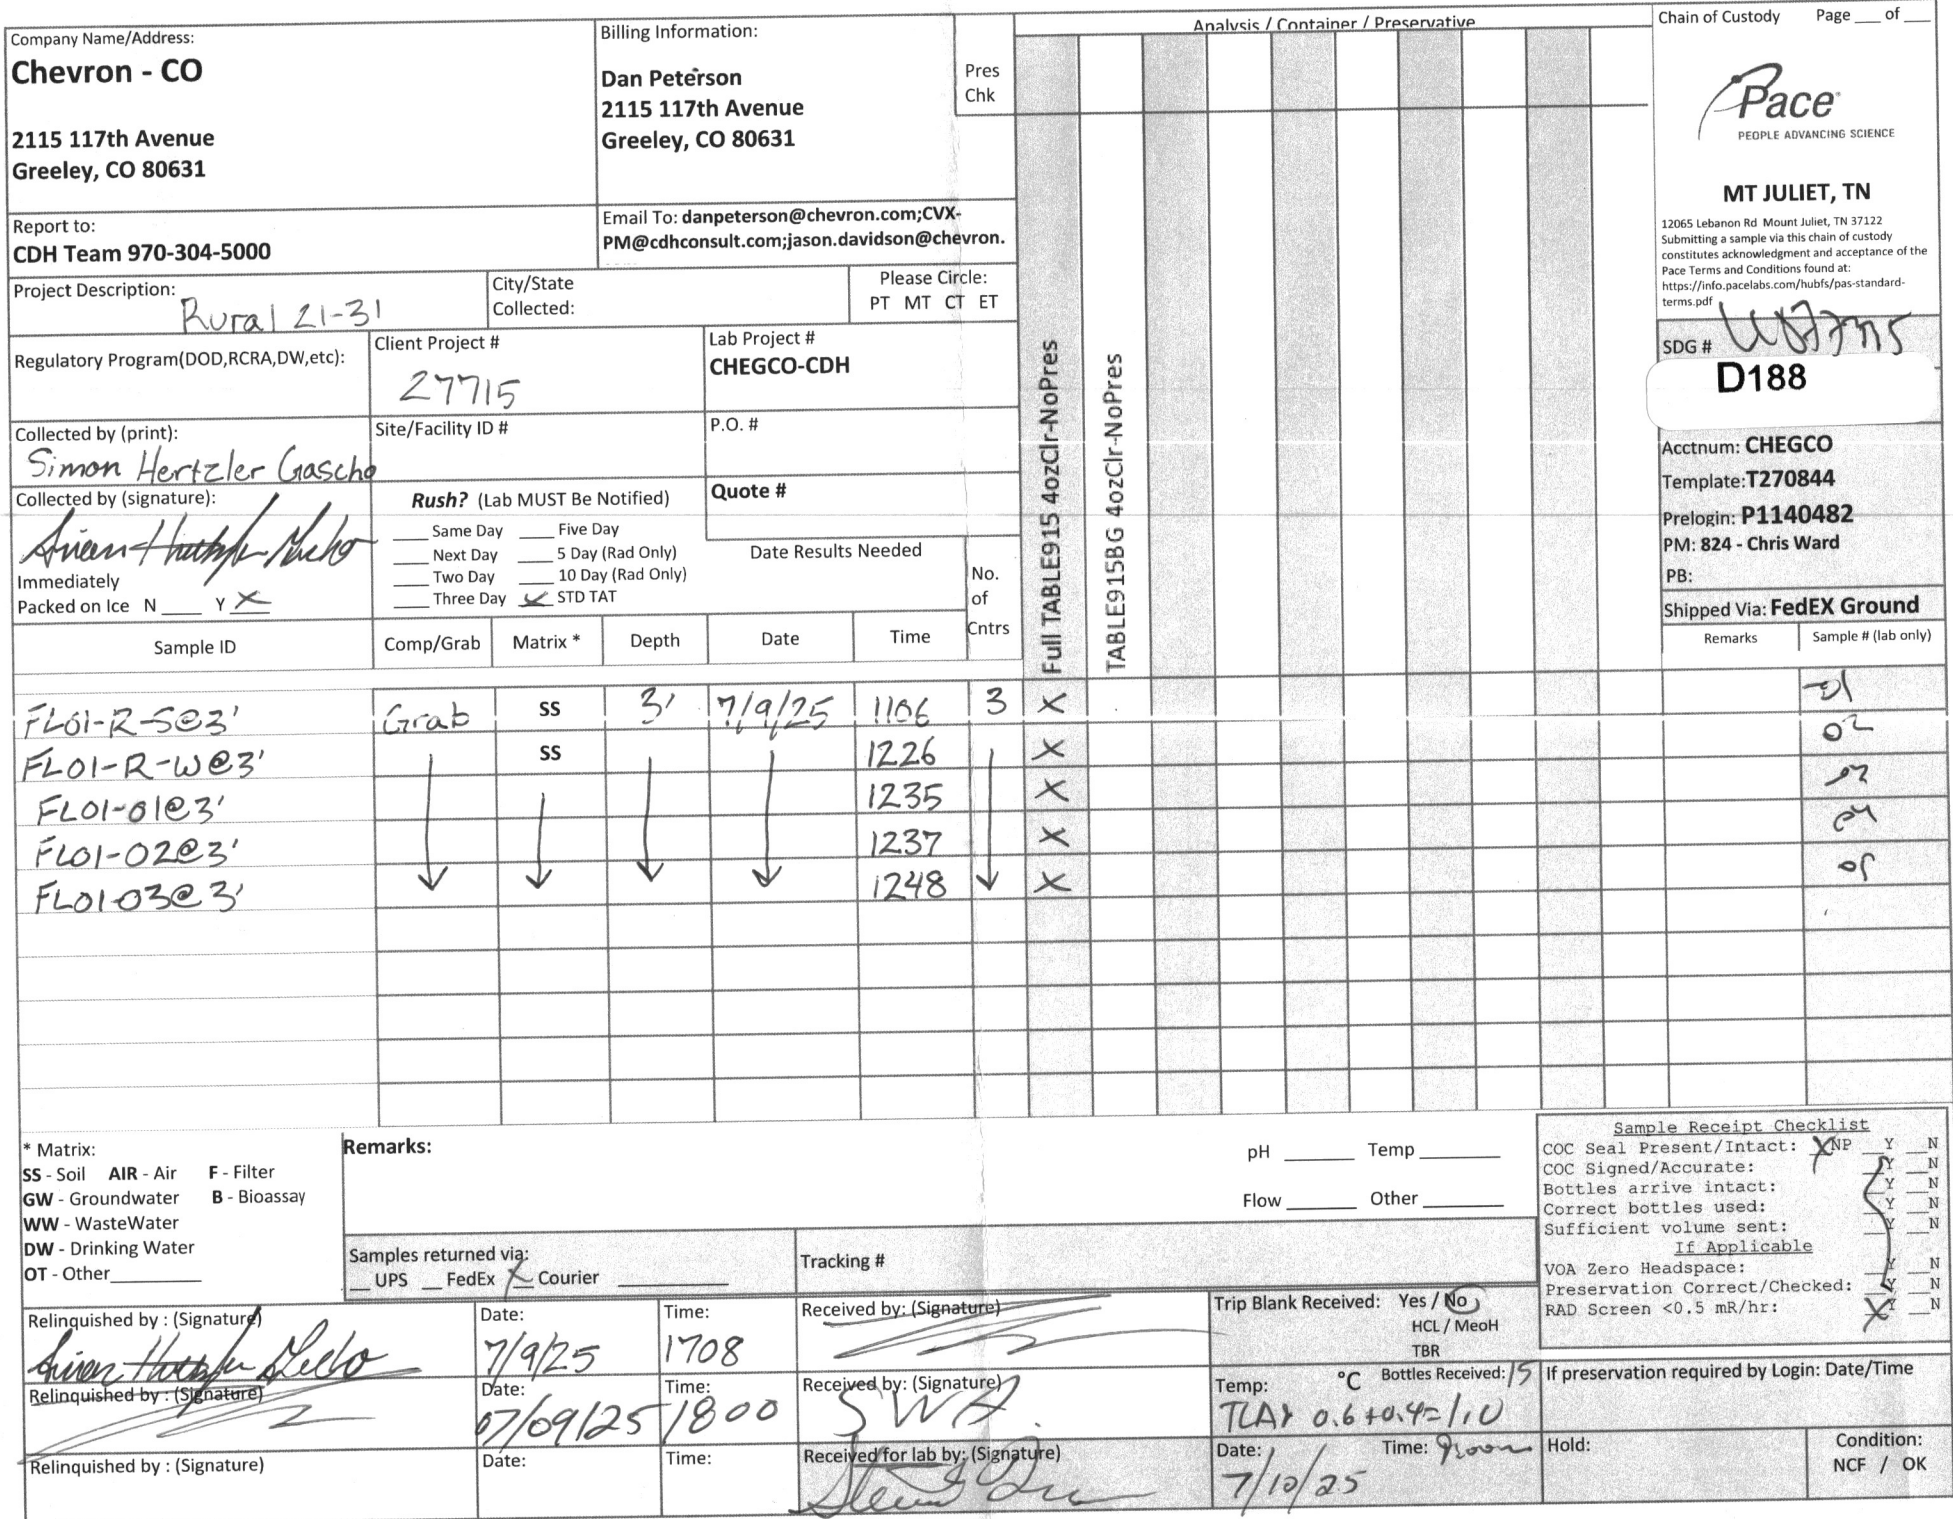 Company Name/Address:
Chevron - CO
2115 117th Avenue
Greeley, CO 80631
Billing Information:
Dan Peterson
2115 117th Avenue
Greeley, CO 80631
Pres
Chk
Analysis / Container / Preservative
Chain of Custody Page ___ of ___
Pace
PEOPLE ADVANCING SCIENCE
MT JULIET, TN
12065 Lebanon Rd Mount Juliet, TN 37122
Submitting a sample via this chain of custody
constitutes acknowledgment and acceptance of the
Pace Terms and Conditions found at:
https://info.pacelabs.com/hubfs/pas-standard-
terms.pdf
Report to:
CDH Team 970-304-5000
Email To: danpeterson@chevron.com;CVX-
PM@cdhconsult.com;jason.davidson@chevron.
Project Description:
Rural 21-31
City/State
Collected:
Please Circle:
PT MT CT ET
Regulatory Program(DOD,RCRA,DW,etc):
Client Project #
27715
Lab Project #
CHEGCO-CDH
SDG #
D188
Collected by (print):
Simon Hertzler Gascho
Site/Facility ID #
P.O. #
Collected by (signature):
Rush? (Lab MUST Be Notified)
___ Same Day ___ Five Day
___ Next Day ___ 5 Day (Rad Only)
___ Two Day ___ 10 Day (Rad Only)
___ Three Day X STD TAT
Quote #
Date Results Needed
Immediately
Packed on Ice N ___ Y X
No.
of
Cntrs
Full TABLE915 4ozClr-NoPres
TABLE915BG 4ozClr-NoPres
Acctnum: CHEGCO
Template:T270844
Prelogin: P1140482
PM: 824 - Chris Ward
PB:
Shipped Via: FedEX Ground
Sample ID Comp/Grab Matrix * Depth Date Time Remarks Sample # (lab only)
FL01-R-S@3' Grab SS 3' 7/9/25 1106 3 X -01
FL01-R-W@3' SS 1226 X 02
FL01-01@3' 1235 X 03
FL01-02@3' 1237 X 04
FL01-03@3' 1248 X 05
* Matrix:
SS - Soil AIR - Air F - Filter
GW - Groundwater B - Bioassay
WW - WasteWater
DW - Drinking Water
OT - Other
Remarks:
pH ___ Temp ___
Flow ___ Other ___
Samples returned via:
__ UPS __ FedEx X Courier
Tracking #
Sample Receipt Checklist
COC Seal Present/Intact: X NP __Y __N
COC Signed/Accurate: __Y __N
Bottles arrive intact: __Y __N
Correct bottles used: __Y __N
Sufficient volume sent: __Y __N
If Applicable
VOA Zero Headspace: __Y __N
Preservation Correct/Checked: __Y __N
RAD Screen <0.5 mR/hr: X Y __N
Relinquished by : (Signature)
Date:
7/9/25
Time:
1708
Received by: (Signature)
Trip Blank Received: Yes / No
HCL / MeoH
TBR
Relinquished by : (Signature)
Date:
07/09/25
Time:
1800
Received by: (Signature)
SWA.
Temp: °C Bottles Received: 15
0.6+0.4=1.0
If preservation required by Login: Date/Time
Relinquished by : (Signature)
Date:
Time:
Received for lab by: (Signature)
Date:
7/10/25
Time:
Hold:
Condition:
NCF / OK